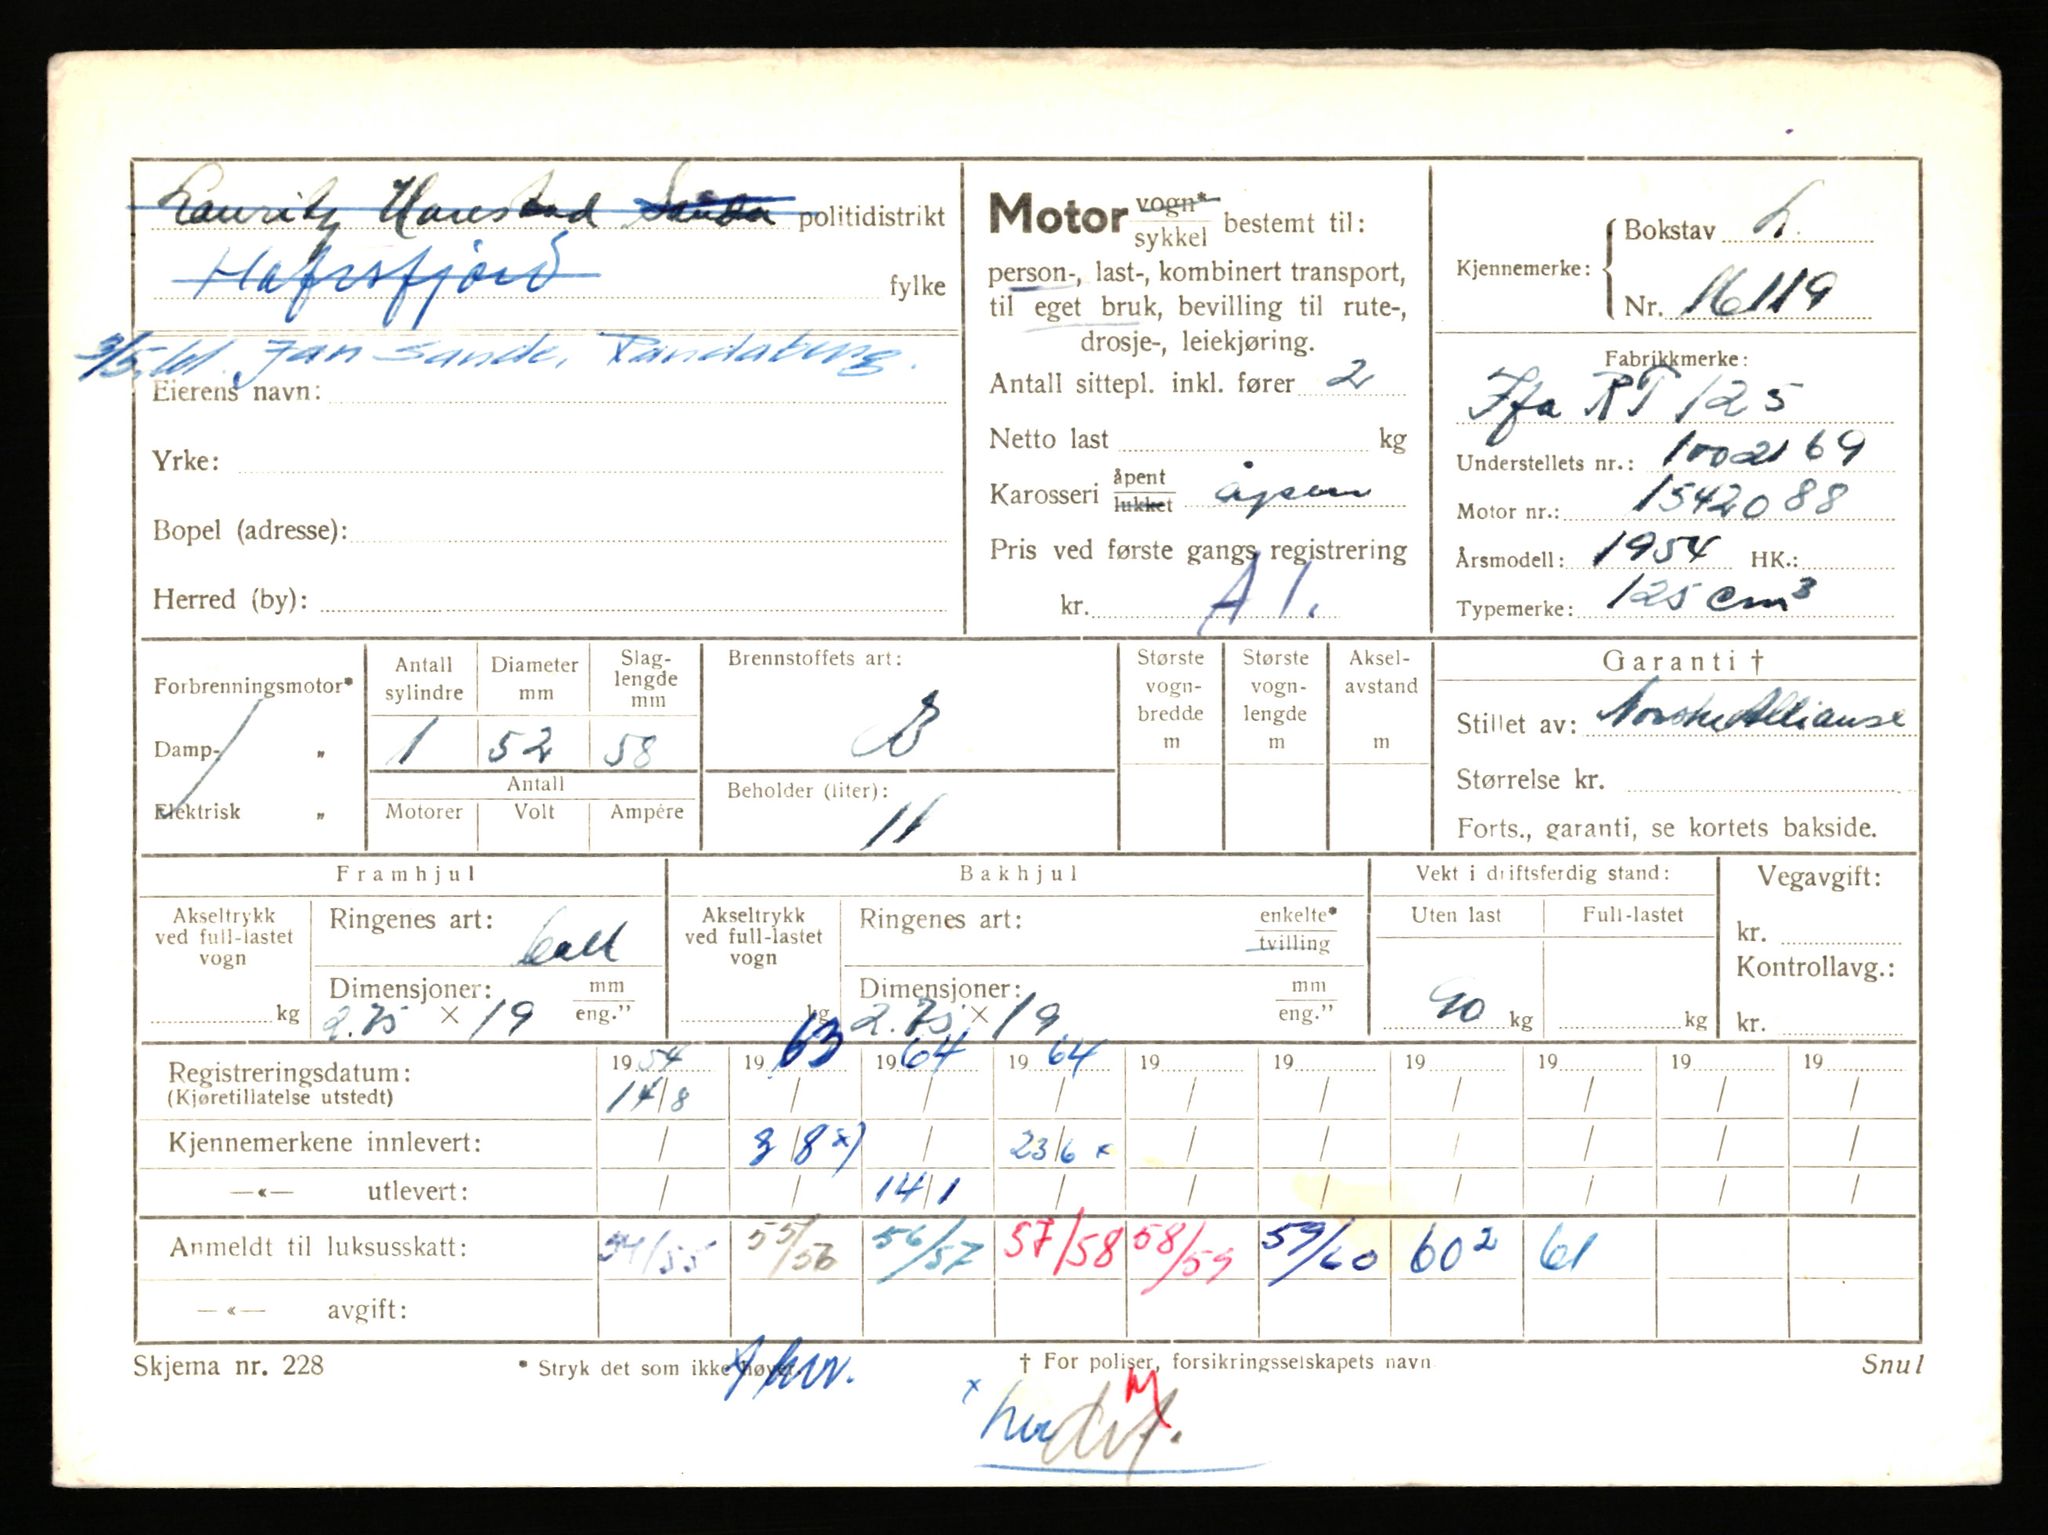 Lauritz Harestad Sanda politidistrikt
Hafrsfjord fylke
3/5.61. Jan Sande, Randaberg.
Eierens navn:
Yrke:
Bopel (adresse):
Herred (by):
Motor vogn* sykkel bestemt til:
person-, last-, kombinert transport,
til eget bruk, bevilling til rute-,
drosje-, leiekjøring.
Antall sittepl. inkl. fører 2
Netto last kg
Karosseri åpent lukket åpen
Pris ved første gangs registrering
kr. A 1.
Kjennemerke: Bokstav L.
Nr. 16119
Fabrikkmerke:
Ifa RT 125
Understellets nr.: 1002169
Motor nr.: 1542088
Årsmodell: 1954 HK.:
Typemerke: 125 cm³
Forbrenningsmotor*
Damp- „
Elektrisk „
Antall sylindre 1
Diameter mm 52
Slag-lengde mm 58
Antall
Motorer Volt Ampére
Brennstoffets art:
B
Beholder (liter):
11
Største vogn-bredde m
Største vogn-lengde m
Aksel-avstand m
Garanti †
Stillet av: Norske Allianse
Størrelse kr.
Forts., garanti, se kortets bakside.
Framhjul
Akseltrykk ved full-lastet vogn
kg
Ringenes art:
Dimensjoner: mm eng."
2.75 × 19
Bakhjul
Akseltrykk ved full-lastet vogn
kg
Ringenes art: enkelte* tvilling
Dimensjoner: mm eng."
2.75 × 19
Vekt i driftsferdig stand:
Uten last Full-lastet
90 kg kg
Vegavgift:
kr.
Kontrollavg.:
kr.
Registreringsdatum: 1954 1963 1964 1964 19 19 19 19 19 19
(Kjøretillatelse utstedt) 14/8 / / / / / / / / /
Kjennemerkene innlevert: / 8/8 x) / 23/6 x / / / / / /
—«— utlevert: / / 14/1 / / / / / / /
Anmeldt til luksusskatt: 54/55 55/56 56/57 57/58 58/59 59/60 60² 61
—«— avgift:
Skjema nr. 228 * Stryk det som ikke høver. † For poliser, forsikringsselskapets navn Snul
x
M